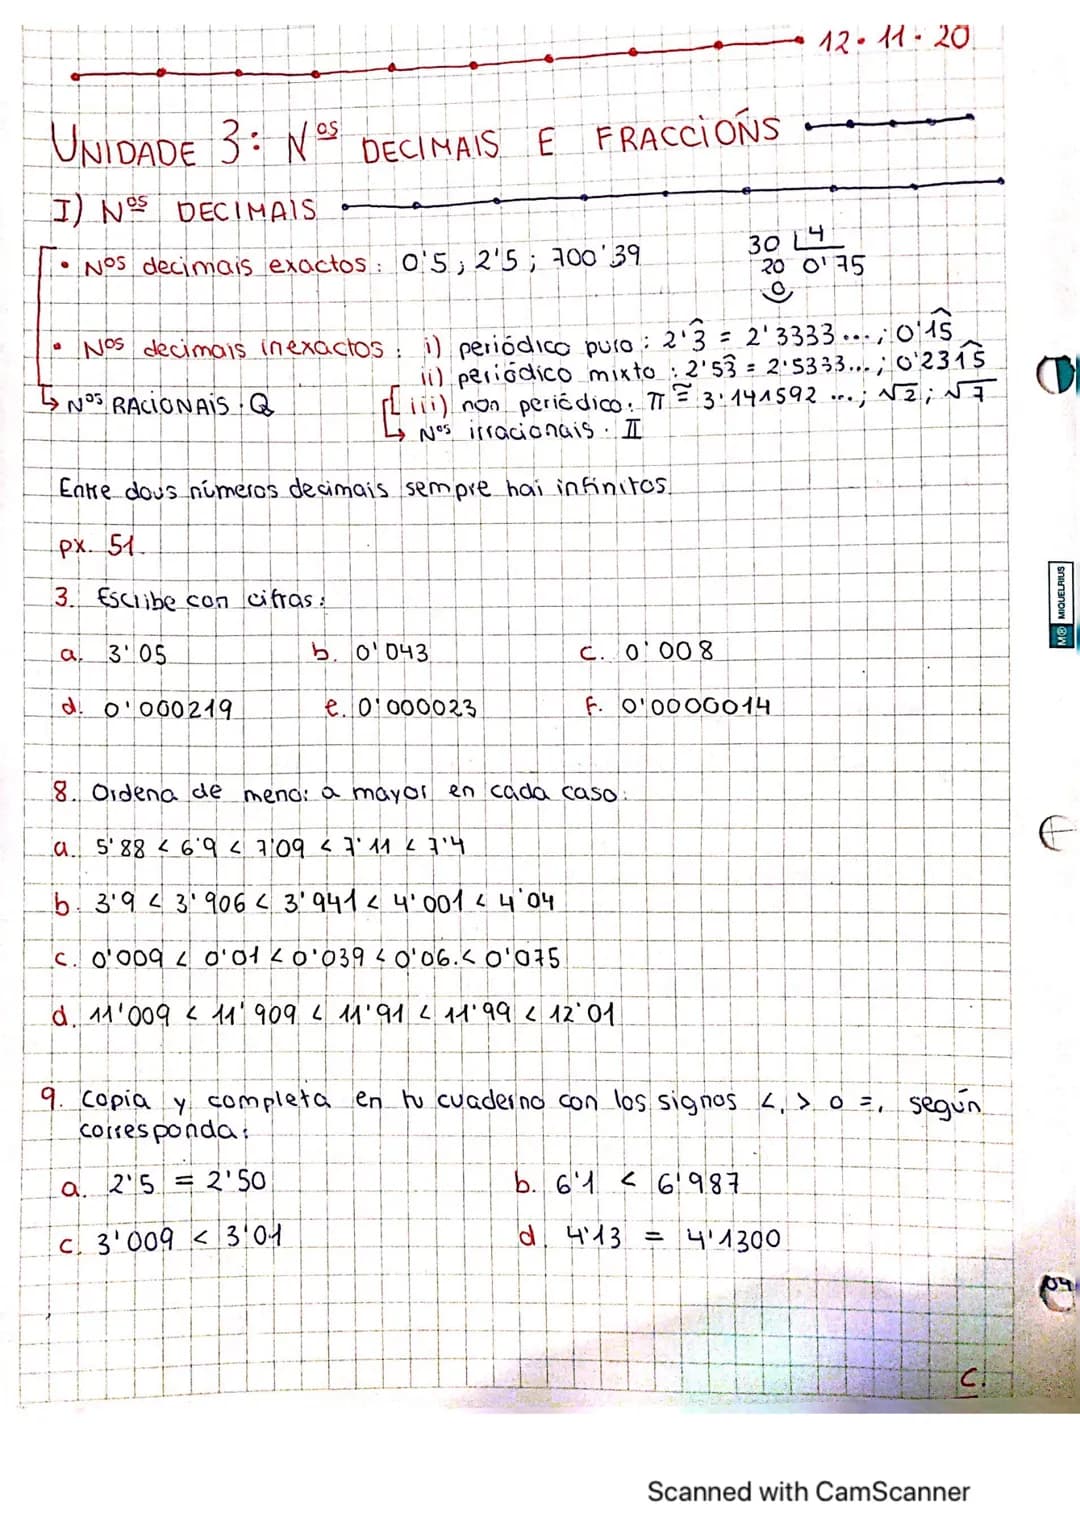 12·11·20
UNIDADE 3: Nºs DECIMAIS E FRACCIÓNS
I) Nºs DECIMAIS
• Nºs decimais exactos: 0'5; 2'5; 700'39
30 4
20 0'75
0
• Nºs decimais inexactos: i) periódico puro: 2'3̂ = 2'3333...; 0'1͡5
ii) periódico mixto: 2'53̂ = 2'5333...; 0'231͡5
↳ Nºs RACIONAIS · Q
iii) non periódico: π ≅ 3'141592 ...; √2; √7
↳ Nºs irracionais · II
Entre dous números decimais sempre hai infinitos.
px. 51
3. Escribe con cifras:
a. 3'05 b. 0'043 c. 0'008
d. 0'000219 e. 0'000023 f. 0'0000014
8. Ordena de menor a mayor en cada caso:
a. 5'88 < 6'9 < 7'09 < 7'11 < 7'4
b. 3'9 < 3'906 < 3'941 < 4'001 < 4'04
c. 0'009 < 0'01 < 0'039 < 0'06 < 0'075
d. 11'009 < 11'909 < 11'91 < 11'99 < 12'01
9. Copia y completa en tu cuaderno con los signos <, > o =, según
corresponda:
a. 2'5 = 2'50 b. 6'1 < 6'987
c. 3'009 < 3'01 d. 4'13 = 4'1300
MIQUELRIUS
c.
Scanned with CamScanner